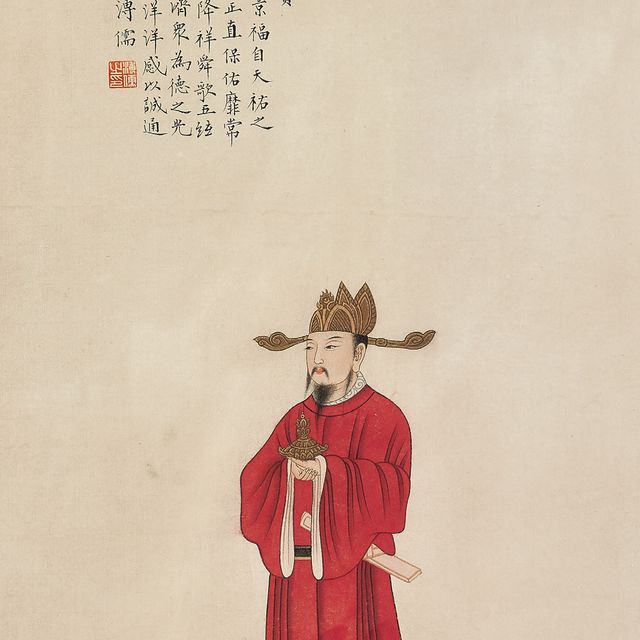 景福自天祐之
正直保佑靡常
降祥舜歌五絃
濟眾為德之光
洋洋感以誠通
溥儒
溥儒之印